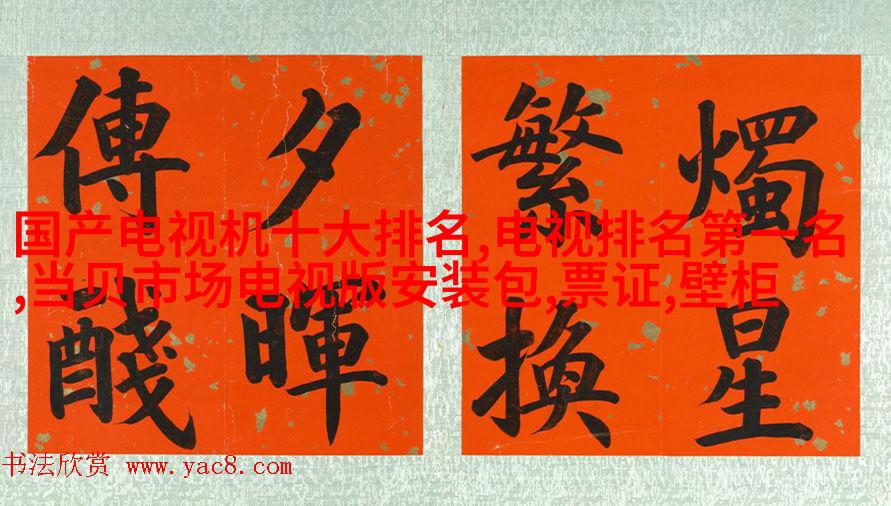 燭星
繁換
夕暉
傳醆
国产电视机十大排名,电视排名第一名
,当贝市场电视版安装包,票证,壁柜
书法欣赏 www.yac8.com